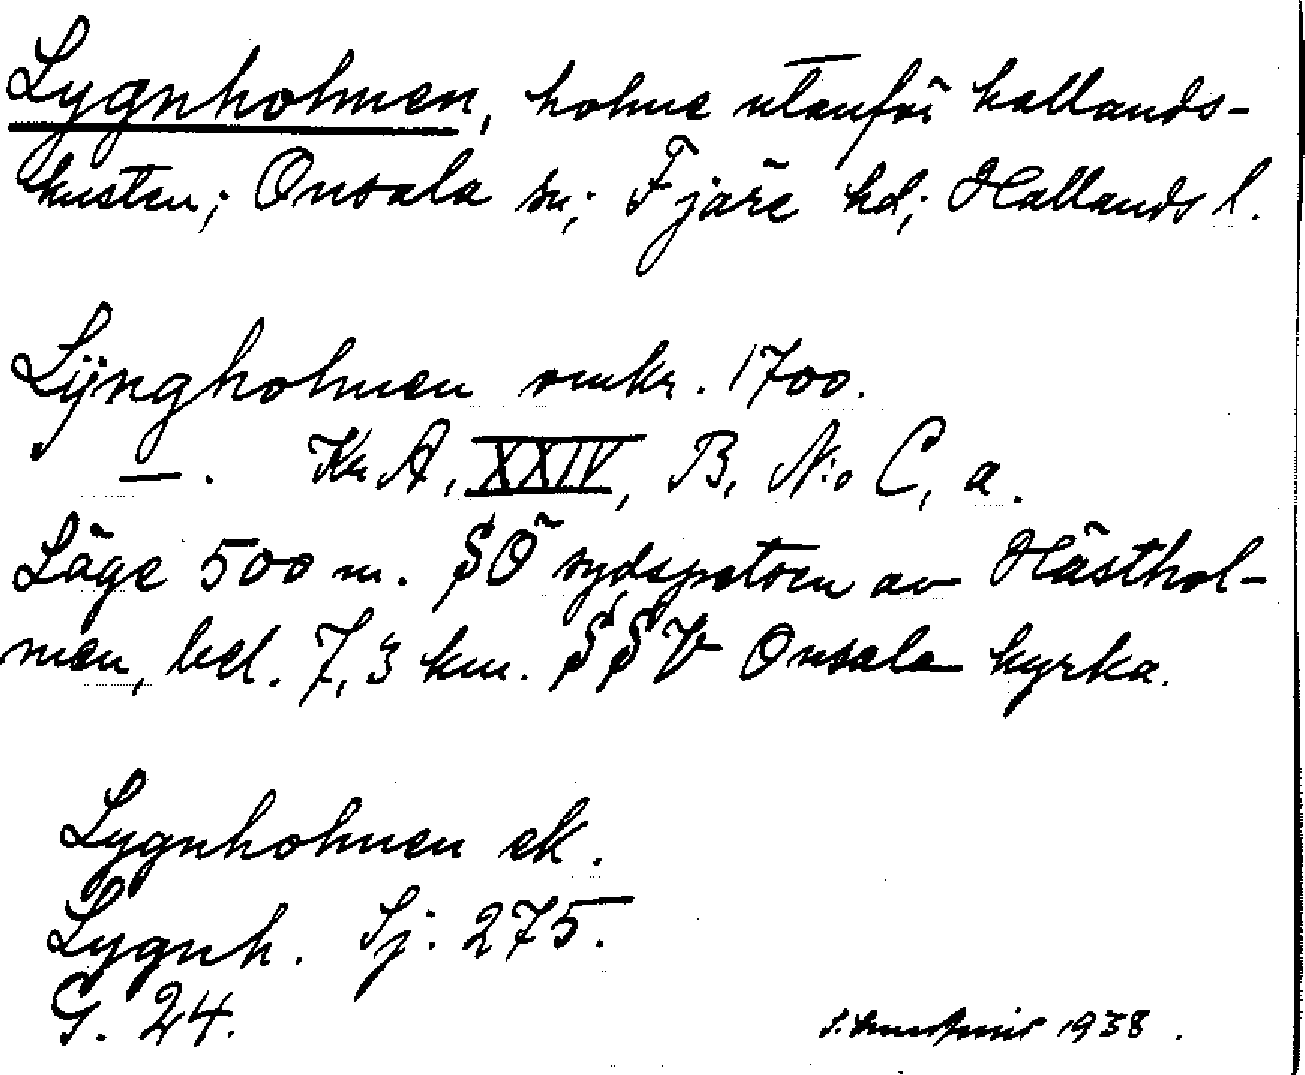 Lygnholmen, holme utanför hallands-
kusten; Onsala sn; Fjäre hd; Hallands l.
Lÿngholmen omkr. 1700.
—. Kr A, XXIV, B, N:o C, a.
Läge 500 m. SÖ sydspetsen av Hästhol-
men, bel. 7,3 km. SSV Onsala kyrka.
Lygnholmen ek.
Lygnh. Sj. 275.
G. 24.
1938.